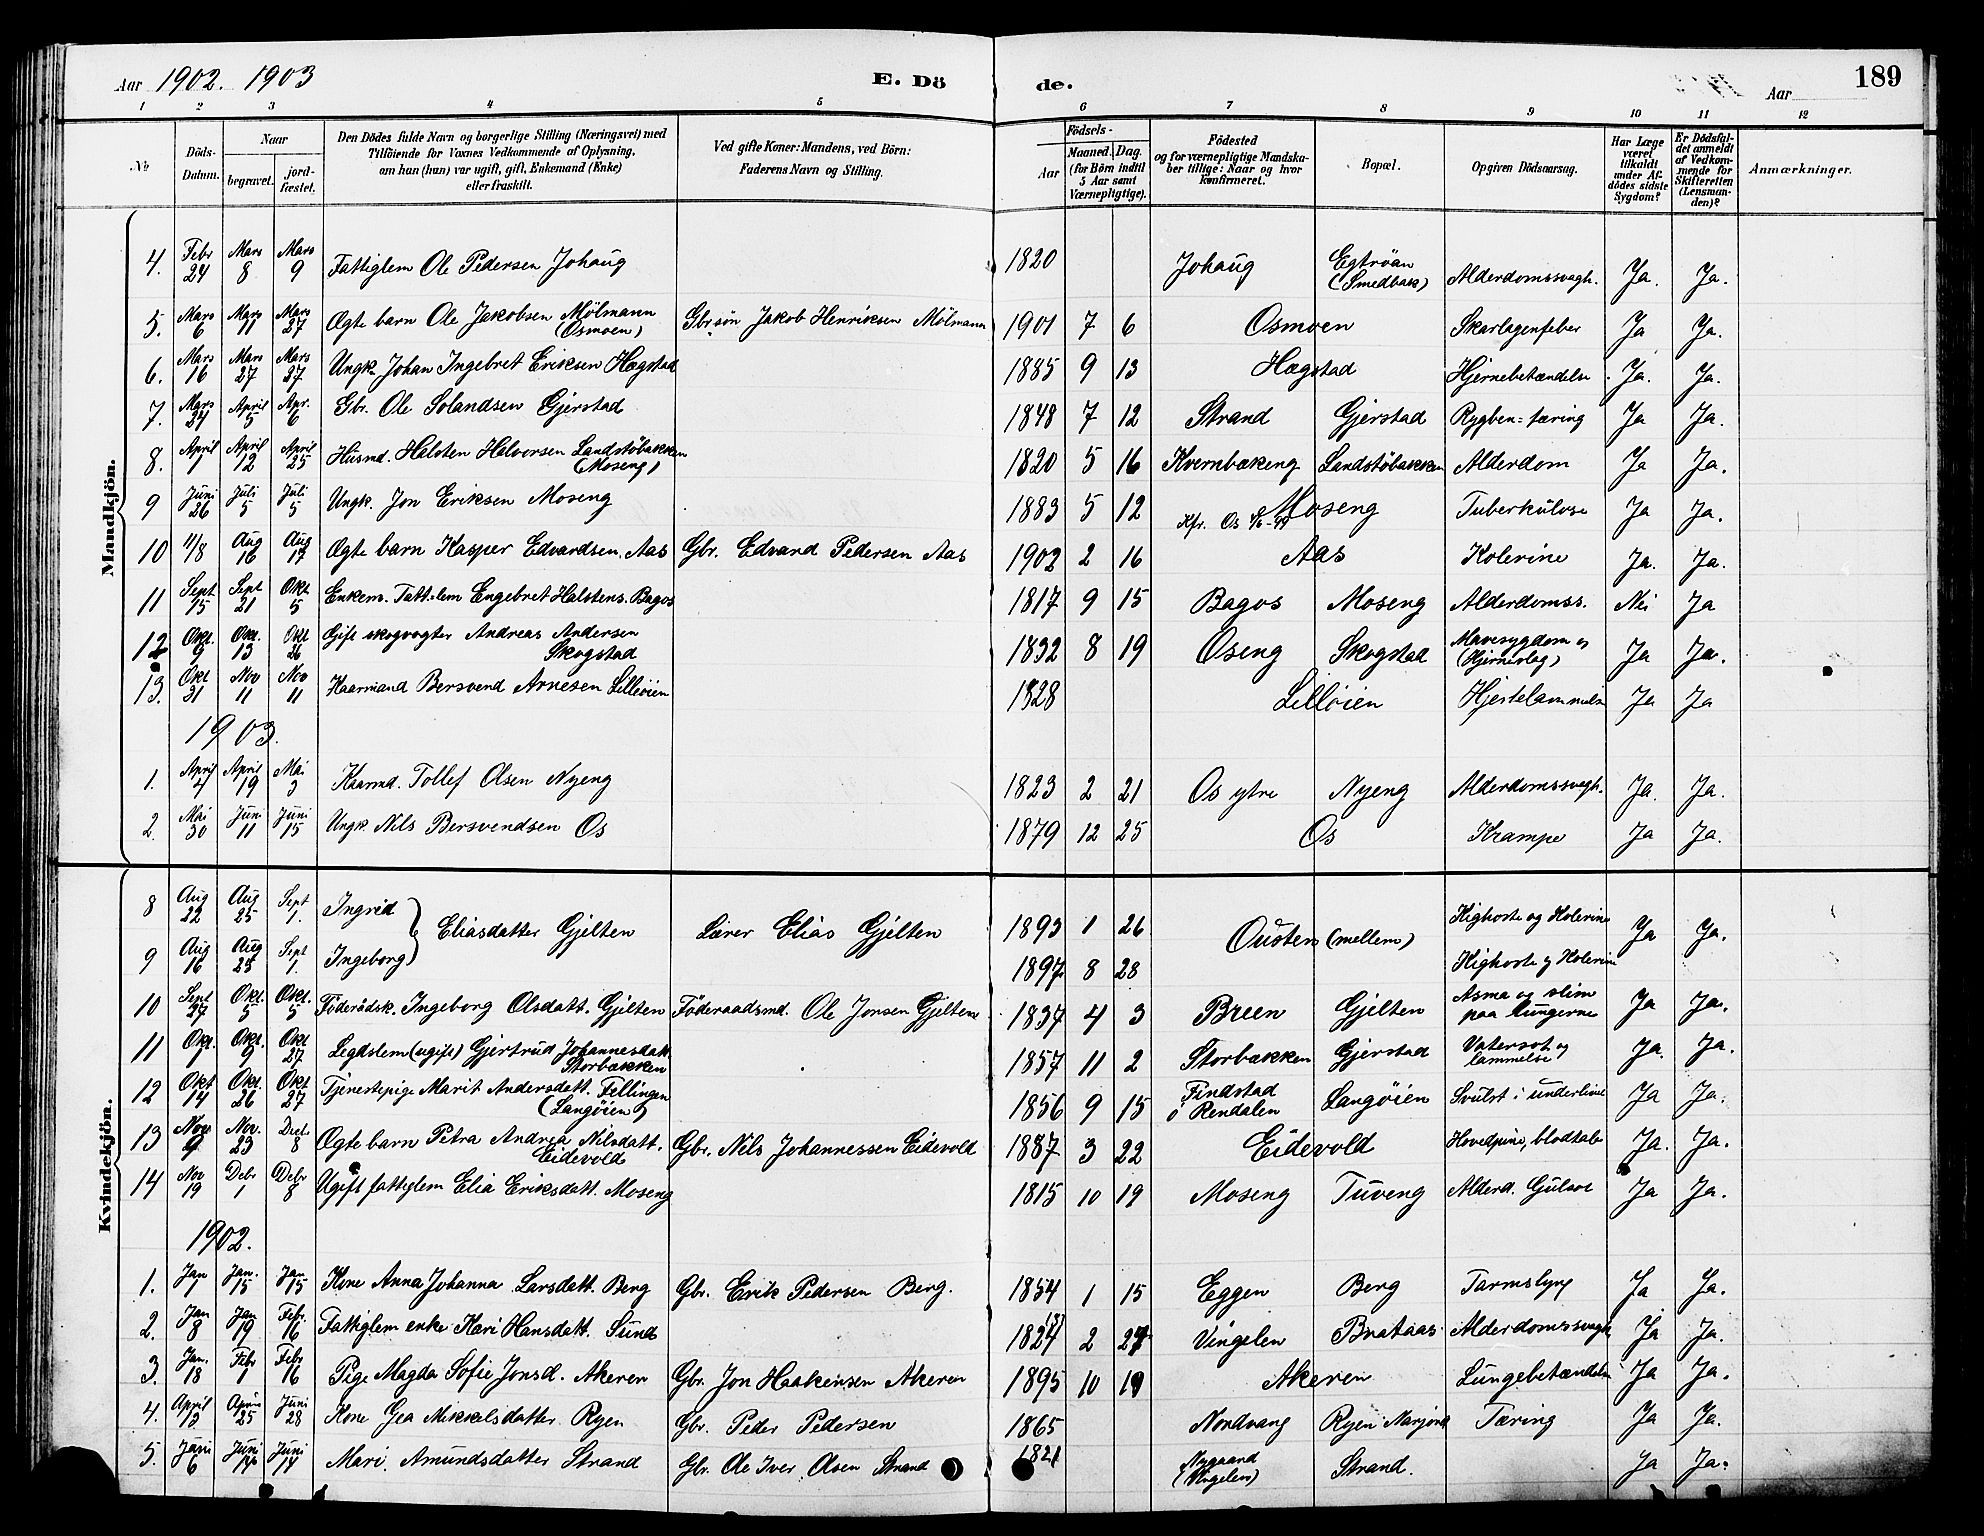 Aar 1902. 1903 E. Dö de. Aar 189
1 2 3 4 5 6 7 8 9 10 11 12
No. Döds-Datum. Naar begravet. jord-fæstet. Den Dödes fulde Navn og borgerlige Stilling (Næringsvei) med Tilföiende for Voxnes Vedkommende af Oplysning, om han (hun) var ugift, gift, Enkemand (Enke) eller fraskilt. Ved gifte Koner: Mandens, ved Börn: Faderens Navn og Stilling. Födsels- Aar Maaned. Dag. (for Börn indtil 5 Aar samt Værnepligtige). Födested og for værnepligtige Mandskaber tillige: Naar og hvor konfirmeret. Bopæl. Opgiven Dödsaarsag. Har Læge været tilkaldt under Afdödes sidste Sygdom? Er Dödsfaldet anmeldt af Vedkommende for Skifteretten (Lensmanden)? Anmærkninger.
Mandkjön.
4. Febr 24 Mars 8 Mars 9 Fattiglem Ole Pedersen Johaug 1820 Johaug Egtröan (Smedbak) Alderdomssvagh. Ja. Ja.
5. Mars 6 Mars 11 Mars 27 Ægte barn Ole Jakobsen Mölmann (Osmoen) Gbrsön Jakob Henriksen Mölmann 1901 7 6 Osmoen Skarlagenfeber Ja Ja.
6. Mars 16 Mars 27 Mars 27 Ungk. Johan Ingebret Eriksen Hægstad 1885 9 13 Hægstad Hjernebetændelse Ja. Ja.
7. Mars 24 April 5 Apr. 6 Gbr. Ole Solandsen Gjerstad 1848 7 12 Strand Gjerstad Rygben-tæring Ja Ja.
8. April 1 April 12 April 25 Husmd. Halsten Halvorsen Landstöbakken (Moseng) 1820 5 16 Kvernbækeng Landstöbakken Alderdom Ja Ja.
9 Juni 26 Juli 5 Juli 5 Ungk. Jon Eriksen Moseng 1883 5 12 Kfr. Os Moseng Tuberkulose Ja Ja.
10 11/8 Aug 16 Aug 17 Ægte barn Kasper Edvardsen Aas Gbr. Edvard Pedersen Aas 1902 2 16 Aas Kolerine Ja. Ja.
11 Sept 15 Sept 21 Okt 5 Enkem. Fatt.lem Engebret Halstens. Bagos 1817 9 15 Bagos Moseng Alderdomss. Nei Ja
12 Okt. 9 Okt. 13 Okt 26 Gift skogvogter Andreas Andersen Skogstad 1832 8 19 Oseng Skogstad Mavesygdom og (Hjerneslag) Ja Ja.
13. Okt 31 Nov 11 Nov 11 Kaarmand Bersvend Arnesen Lillöien 1828 Lillöien Hjertelammelse Ja Ja
1903.
1. April 4 April 19 Mai 3 Kaarmd. Tollef Olsen Nyeng 1823 2 21 Os ytre Nyeng Alderdomssvagh. Ja. Ja.
2. Mai 30 Juni 11 Juni 15 Ungk Nils Bersvendsen Os 1879 12 25 Os Krampe Ja Ja.
Kvindekjön.
8 Aug 22 Aug 25 Sept 1. Ingrid Eliasdatter Gjelten Lærer Elias Gjelten 1893 1 26 Ousten (mellem) Kighoste og Kolerine Ja Ja.
9 Aug 16 Aug 25 Sept 1. Ingeborg 1897 8 28 Kighoste og Kolerine
10 Sept 27 Okt. 5 Okt. 5 Föderådsk. Ingeborg Olsdatt. Gjelten Föderaadsmd. Ole Jonsen Gjelten 1837 4 3 Breen Gjelten Asma og slim paa lungerne Ja Ja.
11 Okt. 1 Okt. 9 Okt 27 Legdslem (ugift) Gjertrud Johannesdatt. Storbækken 1857 11 2 Storbækken Gjerstad Vatersot og lammelse Ja. Ja.
12 Okt 14 Okt. 26 Okt 27 Tjenestepige Marit Andersdatt. Fellingen (Langöien) 1856 9 15 Findstad ö Rendalen Langöien Svulst i underlivet Ja Ja.
13 Nov 9 Nov. 23 Decr 8 Ægte barn Petra Andrea Nilsdatt. Eidevold Gbr. Nils Johannessen Eidevold 1887 3 22 Eidevold Hovedpine, blodtab Ja. Ja.
14 Nov 19 Debr 1 Debr 8 Ugift fattiglem Elia Eriksdatt. Moseng 1815 10 19 Moseng Tuveng Alderd. Gulsot Ja Ja.
1902.
1. Jan 1 Jan. 15 Jan 15 Kone Anna Johanna Larsdatt. Berg Gbr. Eirik Pedersen Berg. 1854 1 15 Eggen Berg Ja Ja.
2. Jan 8 Jan 19 Febr. 16 Fattiglem enke Kari Hansdatt. Sund 1824 2 27 Vingelen Brataas Alderdomssvagh Ja Ja.
3. Jan. 18 Febr 1 Febr 16 Pige Magda Sofie Jonsd. Akeren Gbr. Jon Haakensen Akeren 1895 10 19 Akeren Lungebetændelse Ja Ja.
4. April 12 April 25 Juni 28 Kone Gea Mikkelsdatter Ryen Gbr. Peder Pedersen 1865 Nordvang Ryen Tæring Ja Ja.
5. Juni 6 Juni 14 Juni 14 Mari Amundsdatter Strand Gbr. Ole Iver Olsen Strand 1821 Nygaard (Vingelen) Strand. Ja Ja.